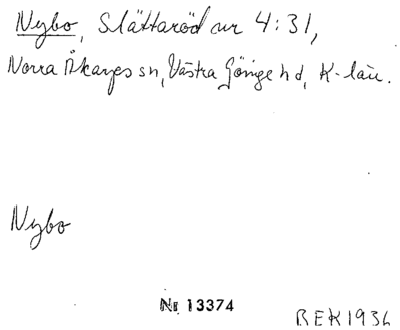 Nybo, Slättaröd nr 4:31,
Norra Åkarps sn, Västra Göinge hd, K-län.
Nybo
Nr 13374
BEK 1936